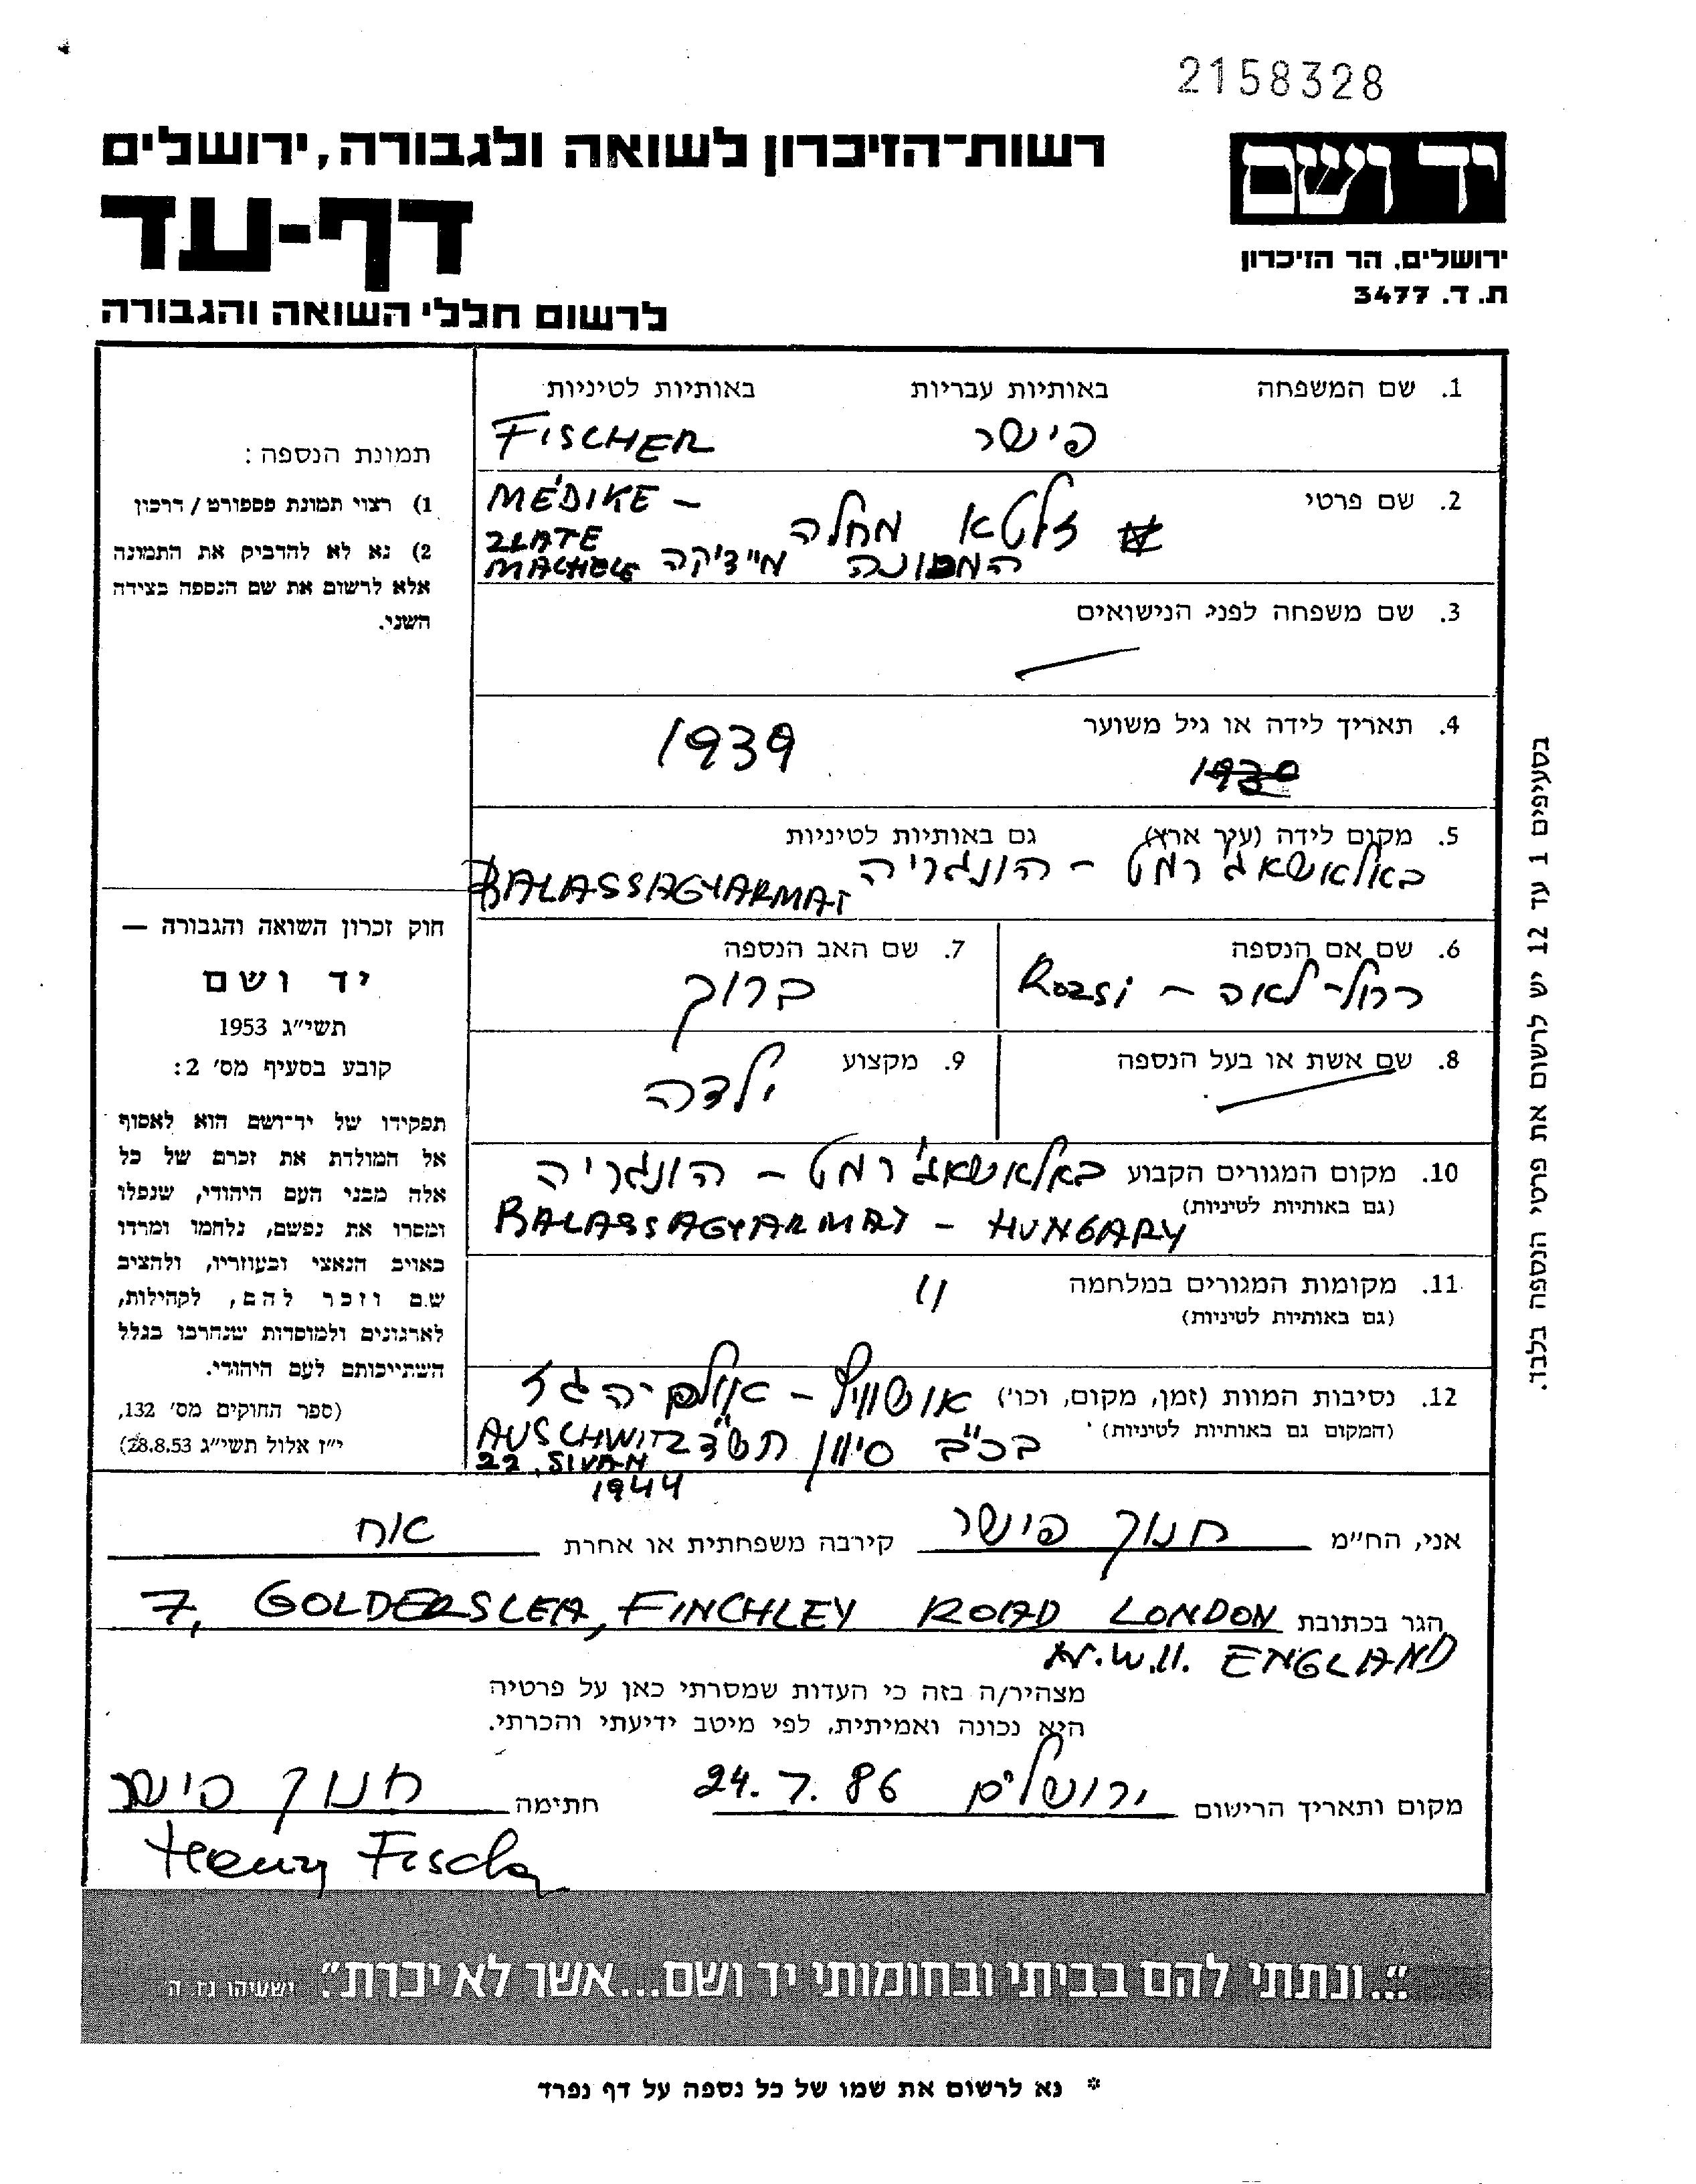 2158328
יד ושם
רשות-הזיכרון לשואה ולגבורה, ירושלים
דף-עד
ירושלים, הר הזיכרון
ת. ד. 3477
לרשום חללי השואה והגבורה
1. שם המשפחה באותיות עבריות באותיות לטיניות
פישר FISCHER
2. שם פרטי זלטא מחלה MÉDIKE -
ZLATE
המכונה מיידיקה MACHELE
3. שם משפחה לפני הנישואים
4. תאריך לידה או גיל משוער
1939
5. מקום לידה (עיר ארץ) גם באותיות לטיניות
באלאשאג'רמט - הונגריה BALASSAGYARMAT
6. שם אם הנספה
רחל-לאה - Rozsi
7. שם האב הנספה
ברוך
8. שם אשת או בעל הנספה
9. מקצוע
ילדה
10. מקום המגורים הקבוע באלאשאג'רמט - הונגריה
(גם באותיות לטיניות)
BALASSAGYARMAT - HUNGARY
11. מקומות המגורים במלחמה
(גם באותיות לטיניות)
12. נסיבות המוות (זמן, מקום, וכו') אושוויץ -
(המקום גם באותיות לטיניות)
בכ"ב סיוון תש"ד AUSCHWITZ
22. SIVAN
1944
תמונת הנספה:
1) רצוי תמונת פספורט / דרכון
2) נא לא להדביק את התמונה
אלא לרשום את שם הנספה בצידה
השני.
חוק זכרון השואה והגבורה —
יד ושם
תשי״ג 1953
קובע בסעיף מס׳ 2:
תפקידו של יד־ושם הוא לאסוף
אל המולדת את זכרם של כל
אלה מבני העם היהודי, שנפלו
ומסרו את נפשם, נלחמו ומרדו
באויב הנאצי ובעוזריו, ולהציב
שם וזכר להם, לקהילות,
לארגונים ולמוסדות שנחרבו בגלל
השתייכותם לעם היהודי.
(ספר החוקים מס׳ 132,
י״ז אלול תשי״ג 28.8.53)
בסעיפים 1 עד 12 יש לרשום את פרטי הנספה בלבד.
אני, הח״מ חנוך פישר קירבה משפחתית או אחרת אח
הגר בכתובת 7, GOLDERSLEA, FINCHLEY ROAD LONDON
N.W.11. ENGLAND
מצהיר/ה בזה כי העדות שמסרתי כאן על פרטיה
היא נכונה ואמיתית, לפי מיטב ידיעתי והכרתי.
מקום ותאריך הרישום ירושלים 24. 7. 86 חתימה חנוך פישר
Henry Fischer
״...ונתתי להם בביתי ובחומותי יד ושם...אשר לא יכרת״. ישעיהו נו ה
* נא לרשום את שמו של כל נספה על דף נפרד